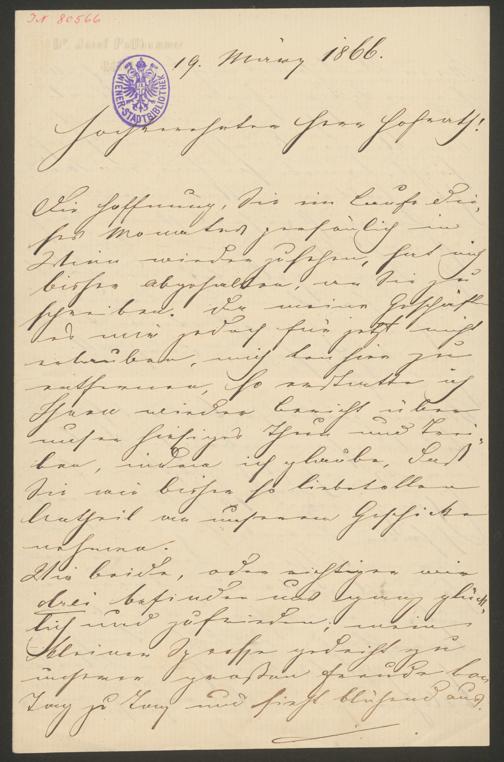 IN 80566
Dr. Josef Pollhammer
WIENER-STADTBIBLIOTHEK
19. März 1866.
Hochverehrter Herr Hofrath!
Die Hoffnung, Sie im Laufe die-
ses Monates persönlich in
Wien wiederzusehen, hat mich
bisher abgehalten, an Sie zu
schreiben. Da meine Geschäfte
es mir jedoch für jetzt nicht
erlauben, mich von hier zu
entfernen, so erstatte ich
Ihnen wieder Bericht über
unser hiesiges Thun und Trei-
ben, indem ich glaube, daß
Sie wie bisher so liebevollen
Antheil an unserem Geschicke
nehmen.
Wir beide, oder richtiger wir
drei befinden uns ganz glück-
lich und zufrieden; mein
kleiner Sprosse gedeiht zu
unserer großen Freude von
Tag zu Tag und sieht blühend aus.